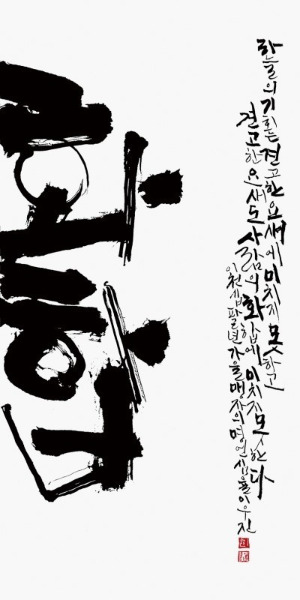 화합
하늘의 기회는 견고한 요새에 미치지 못하고
견고한 요새도 사람의 화합에 미치지 못한다
이천십팔년 가을 맹자의 명언 이우진